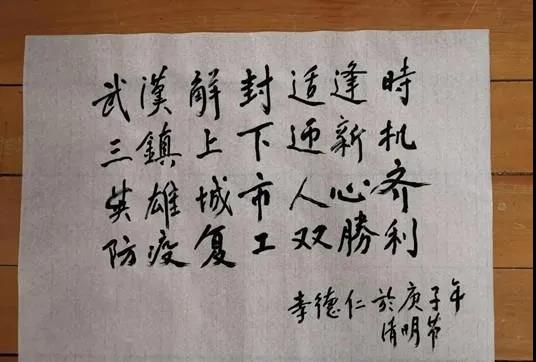 武漢解封适逢時
三鎮上下迎新机
英雄城市人心齐
防疫复工双勝利
李德仁於庚子年
清明节